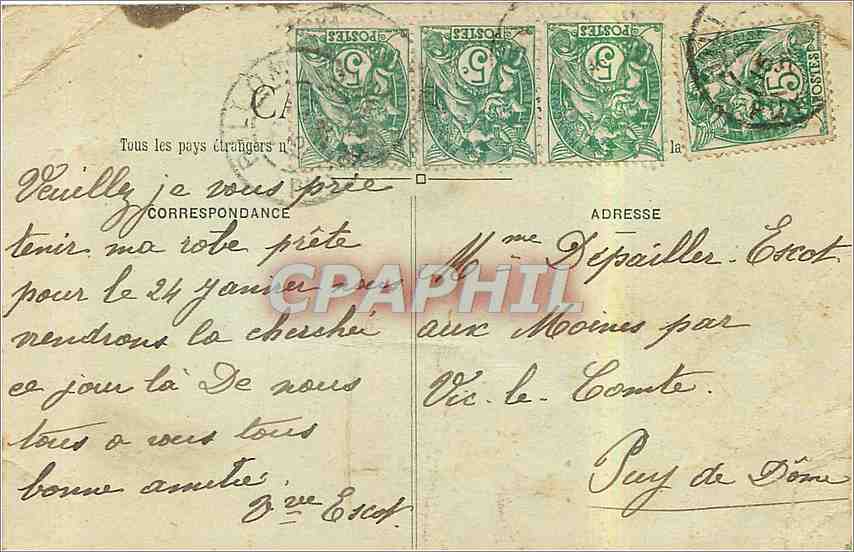 POSTES
5
POSTES
5
POSTES
5
POSTES
5
Tous les pays étrangers n
la
CORRESPONDANCE
Veuillez je vous prie
tenir ma robe prête
pour le 24 Janvier nous
viendrons la cherché
ce jour là De nous
tous a vous tous
bonne amitié
Vve Escot.
ADRESSE
Mme Dépailler-Escot
aux Moines par
Vic-le-Comte.
Puy de Dôme
CPAPHIL